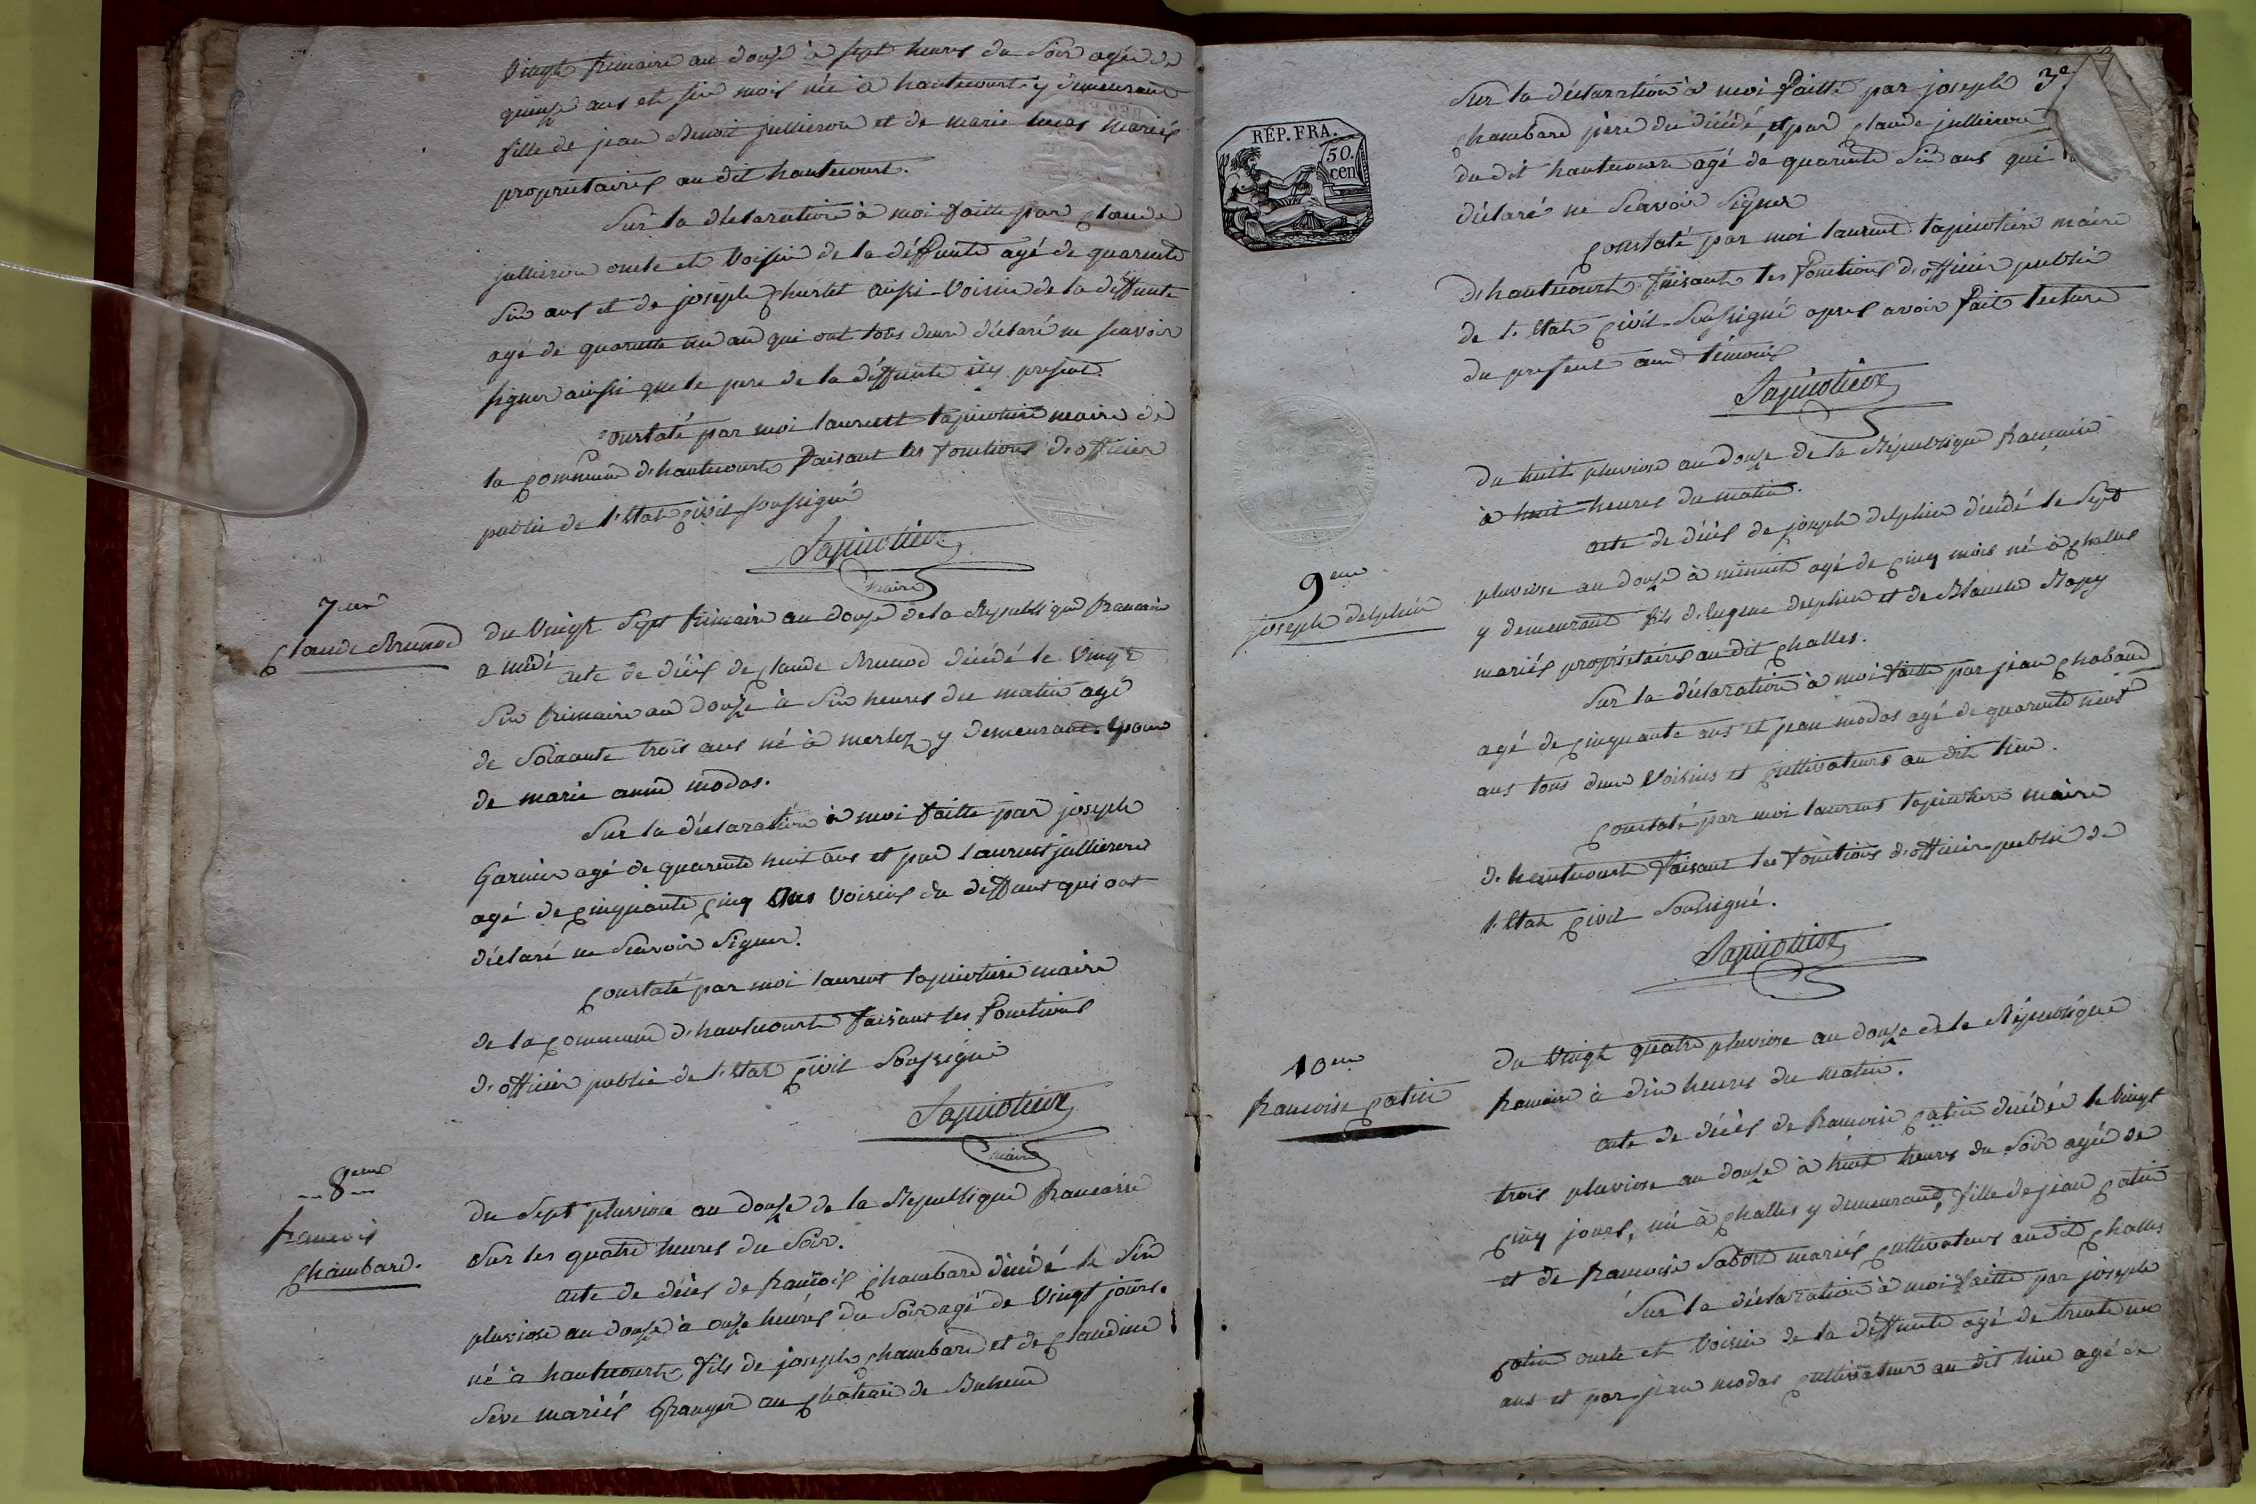 Vingt frimaire an douze à sept heures du Soir agée de
quinze ans et six mois née à hautecourt y demeurant
fille de jean Benoit jullieron et de marie lucas mariés
proprietaires au dit hautecourt.
Sur la déclaration à moi faitte par Claude
jullieron oncle et Voisin de la déffunte agé de quarente
Six ans et de joseph Churlet aussi Voisin de la déffunte
agé de quarente un an qui ont tous deux déclaré ne scavoir
signer ainsi que le pere de la déffunte icy present.
Constaté par moi laurent tapicotiere maire de
la Commune d'hautecourt faisant les fonctions d'officier
public de l'Etat Civil soussigné
maire
7eme
Claude Brunod
du Vingt Sept frimaire an douze de la Republique francaise
a midi acte de décès de Claude Brunod décédé le Vingt
Six frimaire an douze à Six heures du matin agé
de Soixante trois ans né à merloz y demeurant. Epoux
de marie anne modas.
Sur la déclaration à moi faitte par joseph
Garnier agé de quarente huit ans et par laurent jullieron
agé de Cinquante Cinq Ans Voisins du deffunt qui ont
déclaré ne Scavoir Signer.
Constaté par moi laurent tapicotiere maire
de la Commune d'hautecourt faisant les fonctions
d'officier public de l'Etat Civil Soussigné
maire
8eme
francois
Chambard.
du Sept pluviose an douze de la Republique francaise
Sur les quatre heures du Soir.
acte de décès de francois Chambard décédé le Six
pluviose an douze à onze heures du Soir agé de Vingt jours.
né à hautecourt fils de joseph Chambard et de Claudine
Seve mariés Granger au Chateau de Buhenc
3e
RÉP. FRA.
50.
cen
Sur la déclaration à moi faitte par joseph
Chambard père du décédé, et par Claude jullieron
du dit hautecour agé de quarente Six ans qui
déclaré ne Scavoir Signer
Constaté par moi laurent tapicotiere maire
d'hautecourt faisant les fonctions d'officier public
de l'Etat Civil Soussigné apres avoir fait lecture
du present aux témoins
9eme
joseph delphin
du huit pluviose an douze de la République francaise
à huit heures du matin.
acte de décès de joseph delphin décédé le Sept
pluviose an douze à minuit agé de Cinq mois né à Challes
y demeurant fils d'Eugene delphin et de Blaise Mopy
mariés propriétaires au dit Challes.
Sur la déclaration à moi faitte par jean Chaband
agé de Cinquante ans et jean modas agé de quarente neuf
ans tous deux Voisins et Cultivateurs au dit lieu.
Constaté par moi laurent tapicotiere maire
d'hautecourt faisant les fonctions d'officier public de
l'Etat Civil Soussigné.
10eme
francoise Catin
du Vingt quatre pluviose an douze de la République
francaise à dix heures du matin.
acte de décès de francoise Catin décédée le Vingt
trois pluviose an douze à huit heures du Soir agée de
Cinq jours, née à Challes y demeurant, fille de jean Catin
et de francoise Sabost mariés Cultivateurs audit Challes
Sur la déclaration à moi faitte par joseph
Catin oncle et Voisin de la déffunte agé de trente un
ans et par jean modas Cultivateur au dit lieu agé de